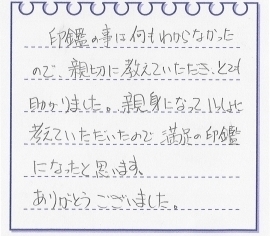 印鑑の事は何もわからなかった
ので、親切に教えていただき、とても
助かりました。親身になっていっしょに
考えていただいたので満足の印鑑
になったと思います。
ありがとうございました。